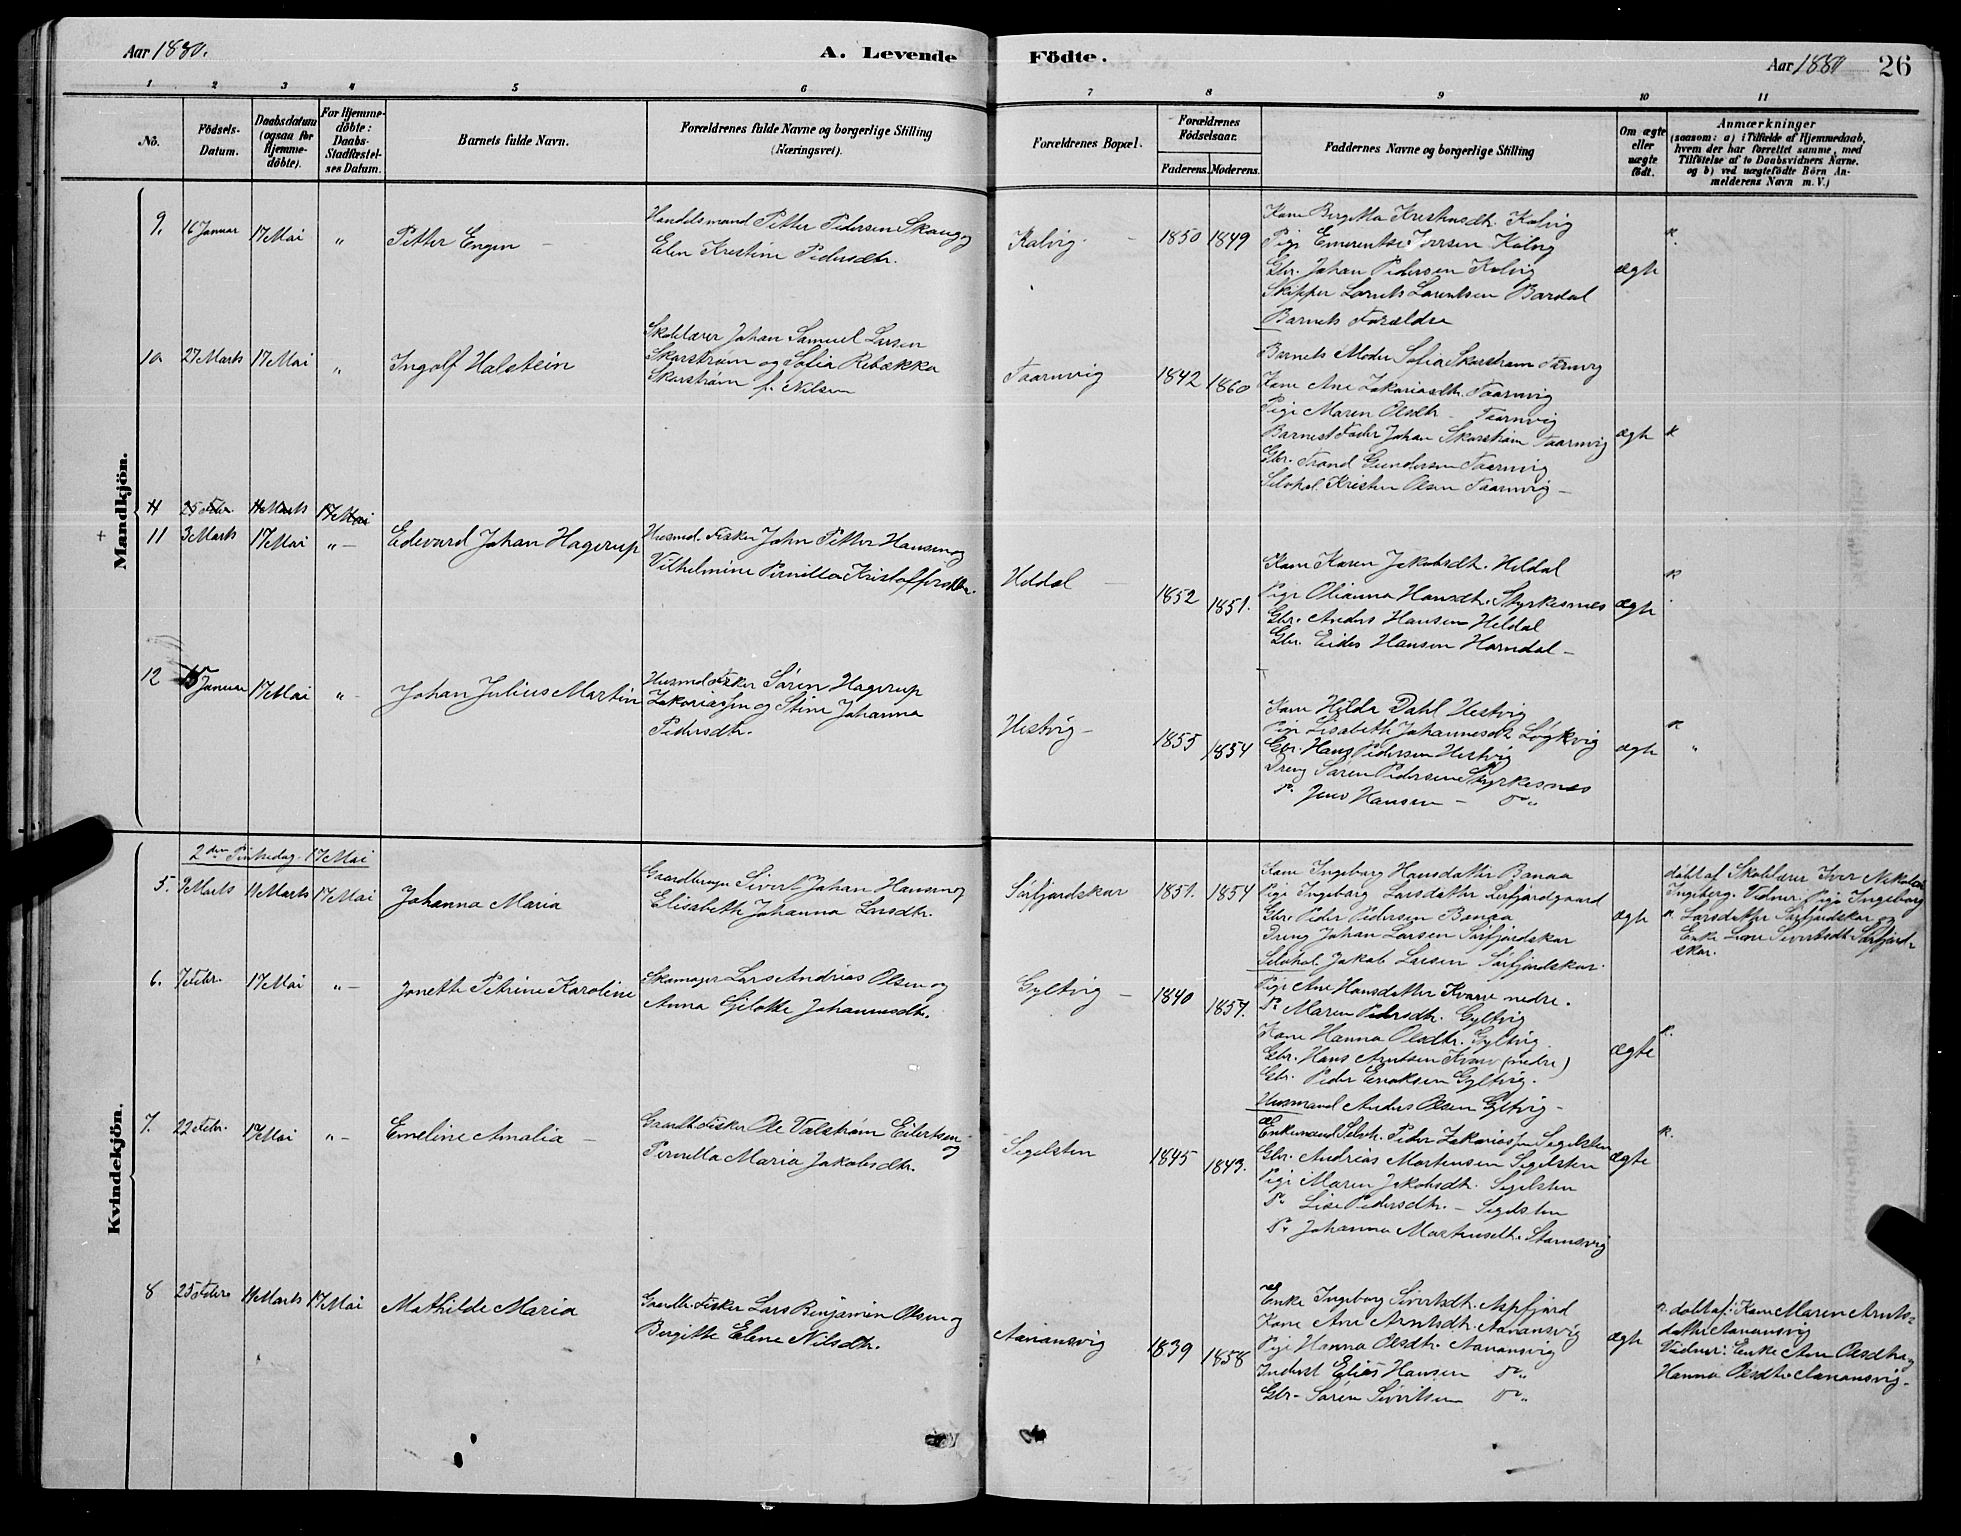 Aar 1880.
A. Levende
Födte.
Aar 1880
26
1
2
3
4
5
6
7
8
9
10
11
No.
Födsels-
Datum.
Daabsdatum
(ogsaa for
Hjemme-
döbte).
For Hjemme-
döbte:
Daabs-
Stadfæstel-
ses Datum.
Barnets fulde Navn.
Forældrenes fulde Navne og borgerlige Stilling
(Næringsvei).
Forældrenes Bopæl.
Forældrenes
Födselsaar.
Faderens.
Moderens.
Faddernes Navne og borgerlige Stilling
Om ægte
eller
uægte
født.
Anmærkninger
(saasom: a) i Tilfælde af Hjemmedaab,
hvem der har forrettet samme, med
Tilföielse af to Daabsvidners Navne.
og b) ved uægtefödte Börn An-
melderens Navn m. V.)
Mandkjön.
9.
16 Januar
17 Mai
"
Petter Engen –
Handelsmand Petter Pedersen Skaug og
Elen Kristine Pedersdtr.
Kalvig –
1850
1849
Kone Bergitta Kalvig
Pige Emerentse Iversen Kalvig
Gbr. Johan Pedersen Kalvig
Skipper Lorents Lorentsen Bardal
Barnets Forældre
ægte
10
27 Marts
17 Mai
"
Ingolf Halstein
Skolelærer Johan Samuel Larsen
Skarstrøm og Sofia Rebækka
Skarstrøm f. Nilsen
Taarnvig
1842
1860
Barnets Moder Sofia Skarstrøm Taarnvig
Kone Ane Zakariasdtr. Taarnvig
Pige Maren Olsdtr – Taarnvig
Barnest Fader Johan Skarstrøm Taarnvig
Gbr. Trond Gundersen Taarnvig
Selvhol. Kristen Olsen Taarnvig –
ægte
11
25 Febr
11 Marts
17 Mai
11
3 Marts
17 Mai
" –
Edevard Johan Hagerup
Husmd. Fisker John Petter Hansen og
Vilhelmine Pernilla Kristoffersdtr.
Heldal –
1852
1851.
Kone Karen Jakobsdtr. Heldal
Pige Olianna Hansdtr. Styrkesnes
Gbr. Anders Hansen Heldal
Gbr. Eides Hansen Horndal –
ægte
12
15 Januar
17 Mai
" –
Johan Julius Martin
Husmd Fisker Sören Hagerup
Zakariassen og Stine Johanna
Pedersdtr.
Hestvig –
1855
1854
Kone Hilda Dahl Hestvig
Pige Lisabeth Johannesdtr Løgkvig
Gbr. Hans Pedersen Hestvig
Dreng Søren Pedersen Styrkesnes
Do Jens Hansen – Do "
ægte
"
Kvindekjön.
2den Pintsedag 17 Mai
5.
9 Marts
11 Marts
17 Mai
Johanna Maria
Gaardbruger Sivert Johan Hansen og
Elisabeth Johanna Larsdtr.
Sørfjordskar
1851.
1854
Kone Ingeborg Hansdatter Banaa
Pige Ingeborg Larsdatter Leifjordgaard
Gbr. Peder Pedersen Banaa
Dreng Johan Larsen Sørfjordskar
Selvhol. Jakob Larsen Sørfjordskar.
ægte
döbt af Skolelærer Iver Nikolai
Ingeberg. Vidner: Pige Ingeborg
Larsdatter Sørfjordskar og
Enke Lene Sivertsdtr. Sørfjord-
skar.
6.
7 Febr.
17 Mai
" –
Jonetth Petrine Karoline
Skomager Lars Andrias Olsen og
Anna Gjelotte Johannesdtr.
Gyltvig –
1840
1857.
Pige Ane Hansdatter Kvarv nedre.
Do Maren Pedersdtr. Gyltvig
Kone Hanna Olsdtr. Gyltvig.
Gbr. Hans Arntsen Kvarv (nedre)
Gbr. Peder Enoksen Gyltvig.
Husmand Anders Olsen Gyltvig –
ægte
7.
22 Febr.
17 Mai
" –
Emeline Amalia –
Gaardbr Fisker Ole Valstrøm Eilertsen og
Pernilla Maria Jakobsdtr.
Segelsten
1845
1843.
Enkemand Selvh. Peder Zakariassen Segelsten
Gbr. Andrias Mortensen Segelsten
Pige Maren Jakobsdtr. Segelsten
Do Lise Pedersdtr. – Segelsten
Do Johanna Mortensdtr. Stamsvig
ægte
8
25 Febr
11 Marts
17 Mai
Mathilde Maria
Gaardbr. Fisker Lars Benjamin Olsen og
Bergitte Elene Nilsdtr.
Aanansvig
1839
1858
Enke Ingeborg Sivertsdtr. Aspfjord
Kone Ane Arntsdtr. Aanansvig
Pige Hanna Olsdtr. Aanansvig
Inderst Elias Hansen Do "
Gbr – Søren Sivertsen Do "
ægte
döbt af: Kone Maren Arnts-
datter Aanansvig
Vidner: Enke Ane Olsdtr og
Hanna Olsdtr Aanansvig.